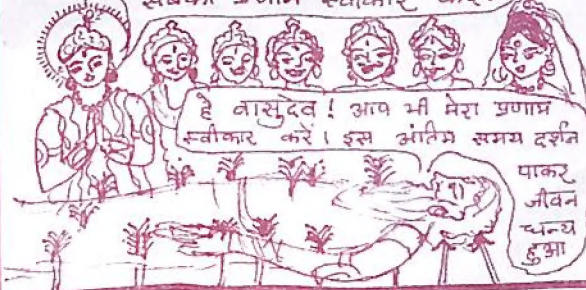 सबका प्रणाम स्वीकार करें
हे वासुदेव ! आप भी मेरा प्रणाम
स्वीकार करें। इस अंतिम समय दर्शन
पाकर
जीवन
धन्य
हुआ